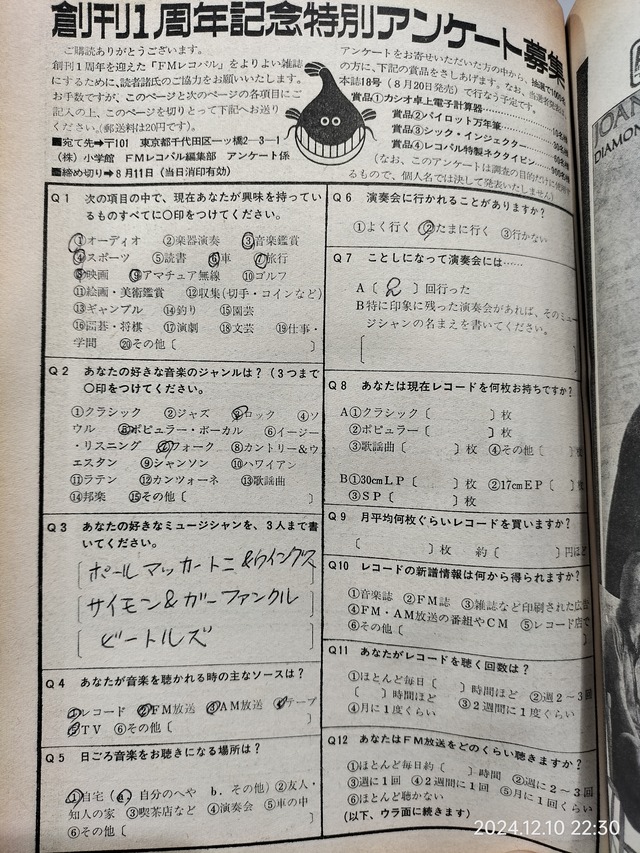 創刊1周年記念特別アンケート募集
ご購読ありがとうございます。
創刊1周年を迎えた「FMレコパル」をよりよい雑誌
にするために、読者諸氏のご協力をお願いいたします。
お手数ですが、このページと次のページの各項目にご
記入の上、このページを切りとって下記へお送り
ください。(郵送料は20円です)。
■宛て先➡〒101 東京都千代田区一ツ橋2―3―1
(株)小学館 FMレコパル編集部 アンケート係
■締め切り➡8月11日(当日消印有効)
アンケートをお寄せいただいた方の中から、抽選で100名
の方に、下記の賞品をさしあげます。なお、当選者発表は、
本誌18号(8月20日発売)で行なう予定です。
賞品①カシオ卓上電子計算器
賞品②パイロット万年筆
賞品③シック・インジェクター
賞品④レコパル特製ネクタイピン
(なお、このアンケートは調査の目的だけに使用す
るもので、個人名では決して発表いたしません)
Q1 次の項目の中で、現在あなたが興味を持ってい
るものすべてに○印をつけてください。
①オーディオ ②楽器演奏 ③音楽鑑賞
④スポーツ ⑤読書 ⑥車 ⑦旅行
⑧映画 ⑨アマチュア無線 ⑩ゴルフ
⑪絵画・美術鑑賞 ⑫収集(切手・コインなど)
⑬ギャンブル ⑭釣り ⑮園芸
⑯囲碁・将棋 ⑰演劇 ⑱文芸 ⑲仕事・
学問 ⑳その他〔 〕
Q2 あなたの好きな音楽のジャンルは?(3つまで
○印をつけてください。
①クラシック ②ジャズ ③ロック ④ソ
ウル ⑤ポピュラー・ボーカル ⑥イージー
・リスニング ⑦フォーク ⑧カントリー&ウ
エスタン ⑨シャンソン ⑩ハワイアン
⑪ラテン ⑫カンツォーネ ⑬歌謡曲
⑭邦楽 ⑮その他〔 〕
Q3 あなたの好きなミュージシャンを、3人まで書
いてください。
〔ポール マッカートニ &ウイングス〕
〔サイモン&ガーファンクル〕
〔ビートルズ〕
Q4 あなたが音楽を聴かれる時の主なソースは?
①レコード ②FM放送 ③AM放送 ④テープ
⑤TV ⑥その他〔 〕
Q5 日ごろ音楽をお聴きになる場所は?
①自宅(a.自分のへや b.その他)②友人・
知人の家 ③喫茶店など ④演奏会 ⑤車の中
⑥その他〔 〕
Q6 演奏会に行かれることがありますか?
①よく行く ②たまに行く ③行かない
Q7 ことしになって演奏会には……
A〔 2 〕回行った
B特に印象に残った演奏会があれば、そのミュー
ジシャンの名まえを書いてください。
〔
Q8 あなたは現在レコードを何枚お持ちですか?
A①クラシック〔 〕枚
②ポピュラー〔 〕枚
③歌謡曲〔 〕枚 ④その他〔 〕枚
B①30cmLP〔 〕枚 ②17cmEP〔 〕枚
③SP〔 〕枚
Q9 月平均何枚ぐらいレコードを買いますか?
〔 〕枚 約〔 〕円ほど
Q10 レコードの新譜情報は何から得られますか?
①音楽誌 ②FM誌 ③雑誌など印刷された広告
④FM・AM放送の番組やCM ⑤レコード店で
⑥その他〔
Q11 あなたがレコードを聴く回数は?
①ほとんど毎日〔 〕時間ほど ②週2～3回
〔 〕時間ほど ③2週間に1度ぐらい
④月に1度ぐらい
Q12 あなたはFM放送をどのくらい聴きますか?
①ほとんど毎日約〔 〕時間 ②週に2～3回
③週に1回 ④2週間に1回 ⑤月に1回ぐらい
⑥ほとんど聴かない
(以下、ウラ面に続きます)
DIAMON
2024.12.10 22:30